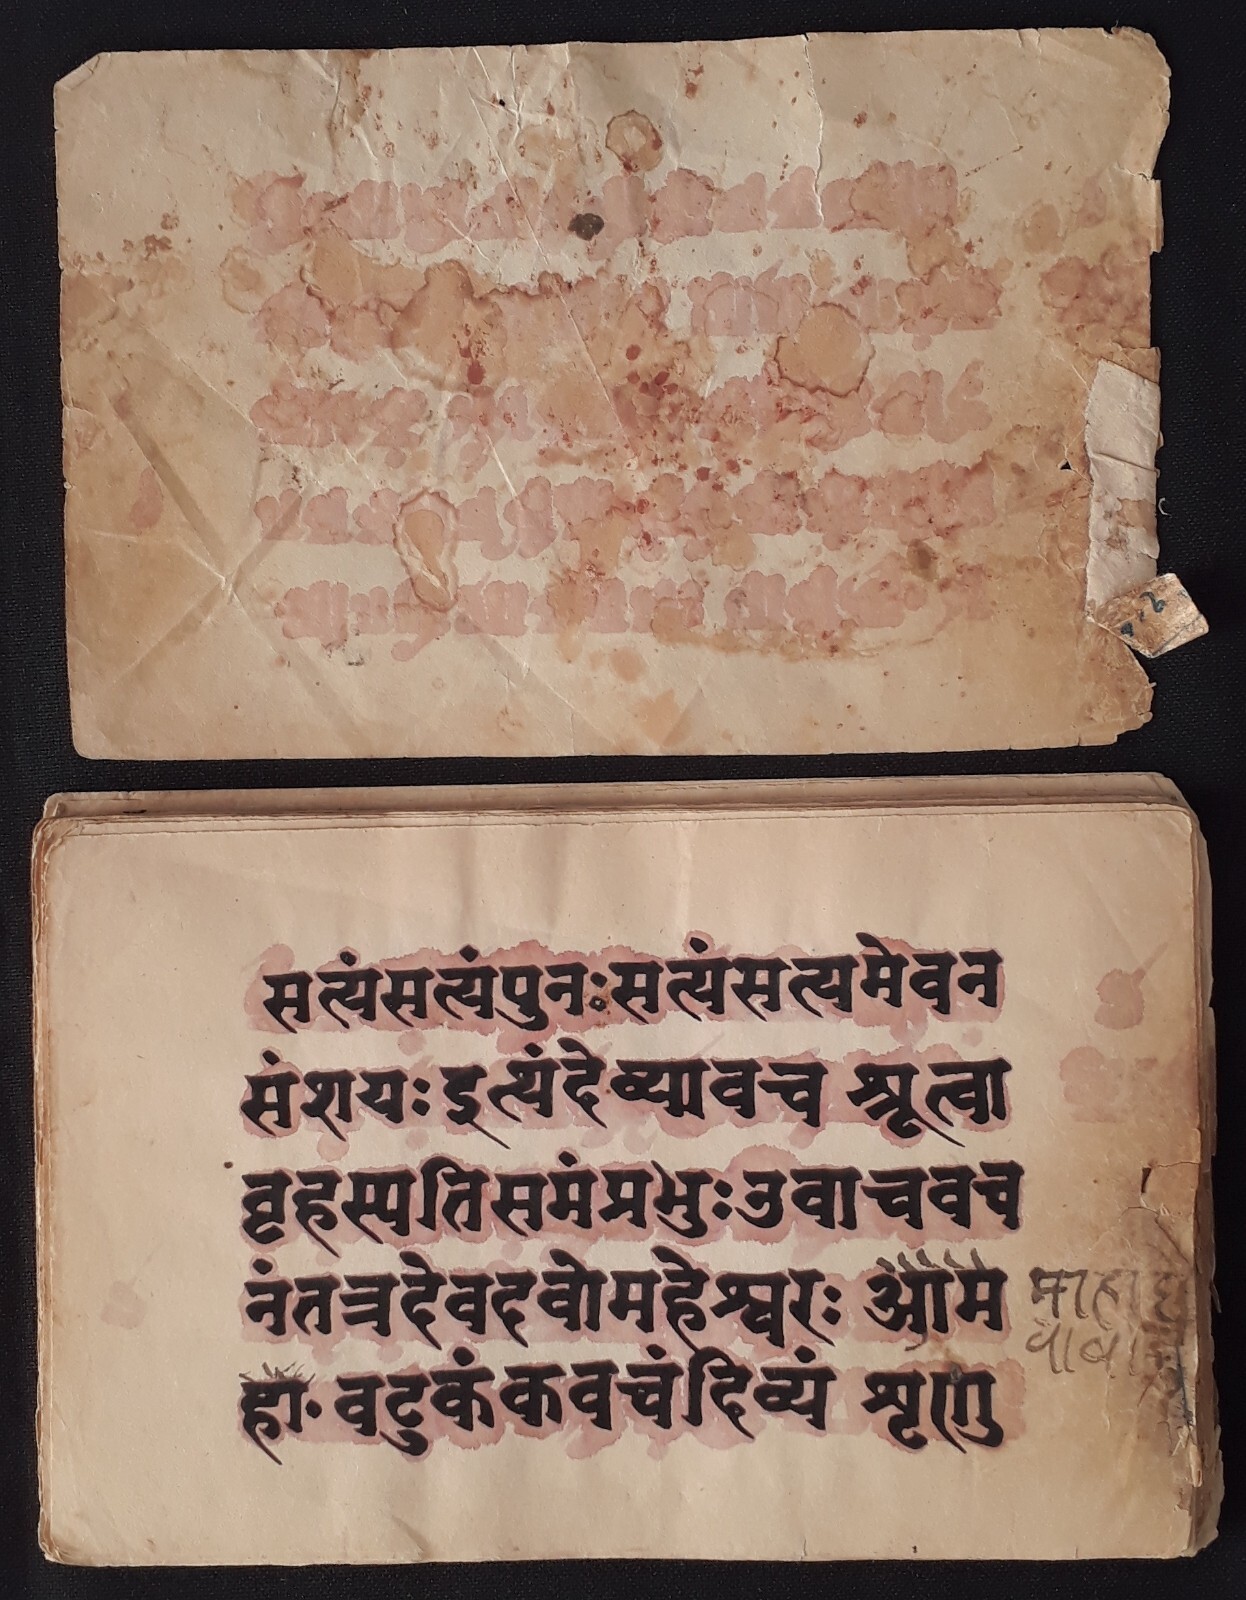 सत्यंसत्यंपुनःसत्यंसत्यमेवन
संशयः इत्यंदेव्यावचच श्रृत्वा
बृहस्पतिसमंप्रभुःउवाचवच
नंतत्रदेवदवोमहेश्वरः ओंम
हा॰ वटुकंकवचंदिव्यं श्रृणु